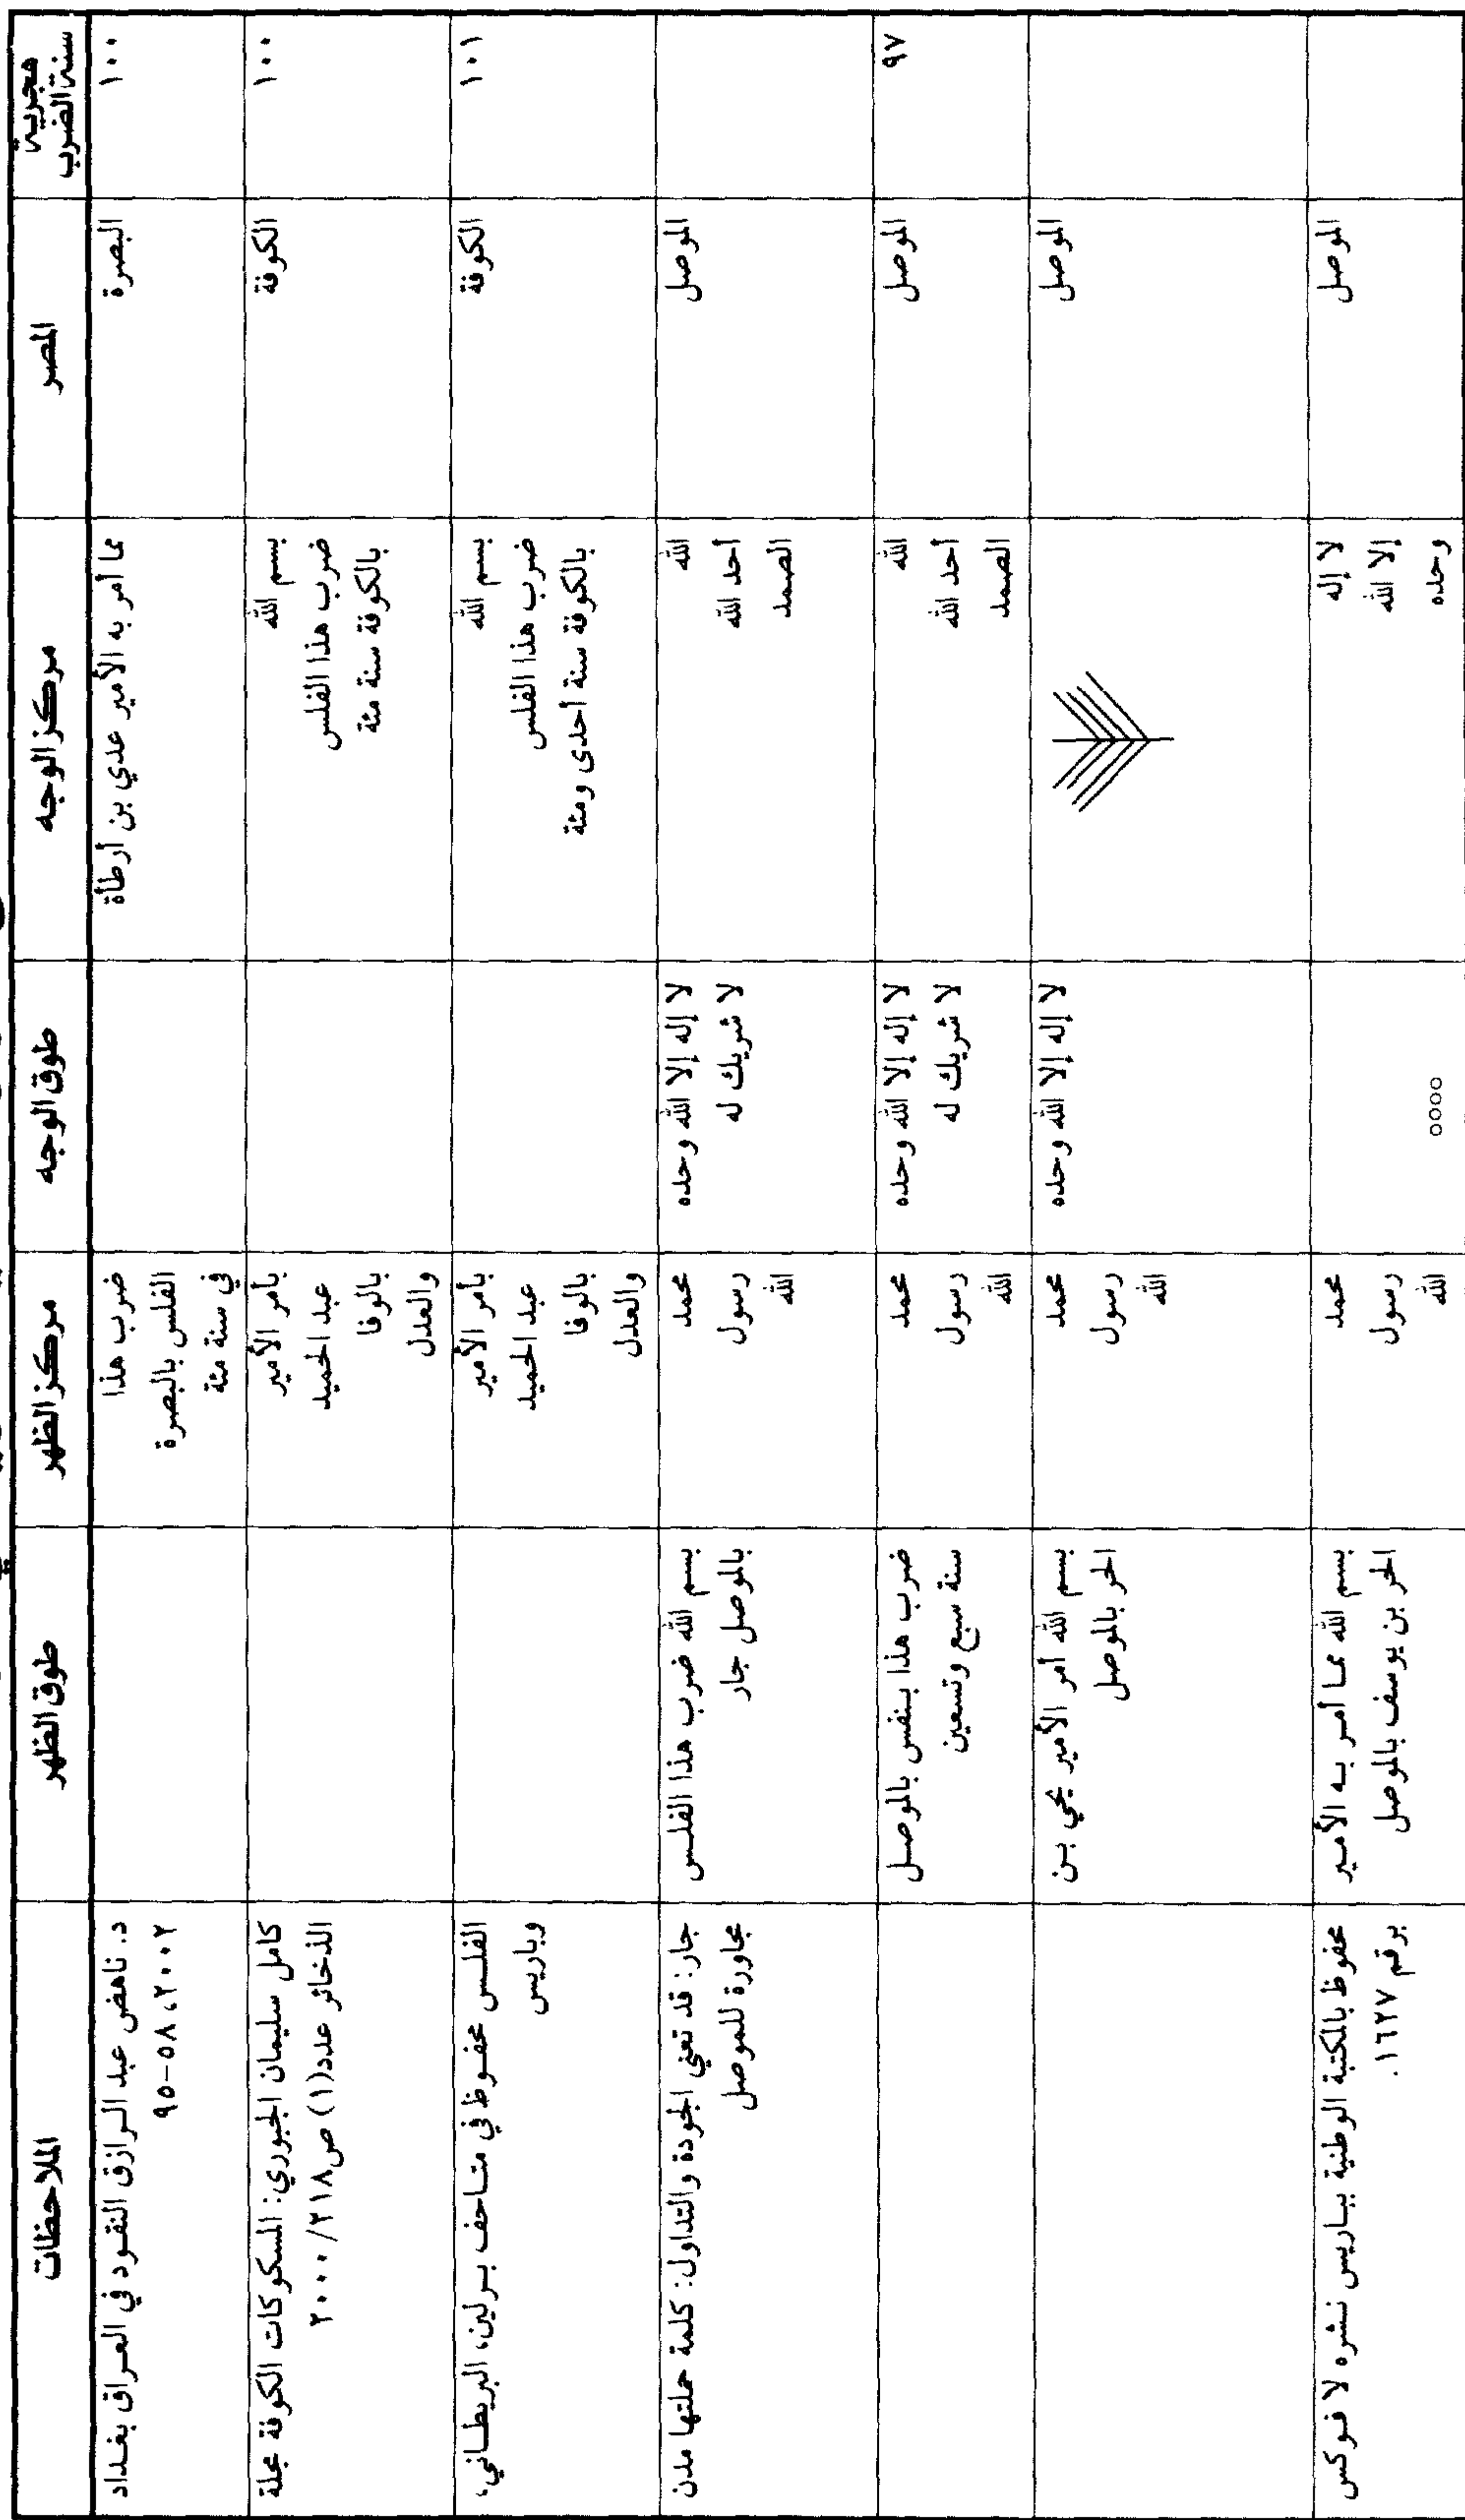 سنة الضرب هجرية
المصر
مركز الوجه
طوق الوجه
مركز الظهر
طوق الظهر
الملاحظات
١٠٠
البصرة
مما أمر به الأمير عدي بن أرطأة
ضرب هذا
الفلس بالبصرة
في سنة مئة
د. ناهض عبد الرازق النقود في العراق بغداد
٢٠٠٢، ٥٨-٩٥
١٠٠
الكوفة
بسم الله
ضرب هذا الفلس
بالكوفة سنة مئة
بأمر الأمير
عبد الحميد
بالوفا
والعدل
كامل سليمان الجبوري: المسكوكات الكوفة مجلة
الذخائر عدد(١) ص٢١٨/٢٠٠٠
١٠١
الكوفة
بسم الله
ضرب هذا الفلس
بالكوفة سنة أحدى ومئة
بأمر الأمير
عبد الحميد
بالوفا
والعدل
الفلس محفوظ في متاحف برلين، البريطاني،
وباريس
الموصل
الله
أحد الله
الصمد
لا إله إلا الله وحده
لا شريك له
محمد
رسول
الله
بسم الله ضرب هذا الفلس
بالموصل جار
جار: قد تعني الجودة والتداول: كلمة حملتها مدن
مجاورة للموصل
٩٧
الموصل
الله
أحد الله
الصمد
لا إله إلا الله وحده
لا شريك له
محمد
رسول
الله
ضرب هذا بنفس بالموصل
سنة سبع وتسعين
الموصل
لا إله إلا الله وحده
محمد
رسول
الله
بسم الله أمر الأمير يحي بن
الحر بالموصل
الموصل
لا إله
إلا الله
وحده
○○○○
محمد
رسول
الله
بسم الله مما أمر به الأمير
الحر بن يوسف بالموصل
محفوظ بالمكتبة الوطنية بباريس نشره لا فوكس
برقم ١٦٢٧.